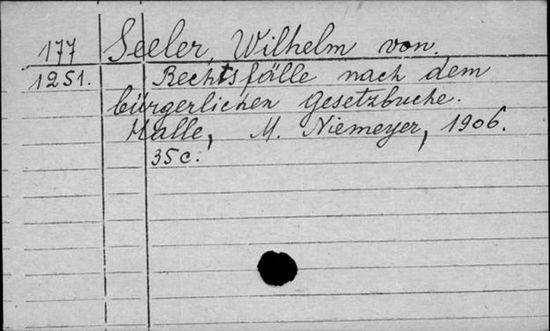 177 Seeler, Wilhelm von.
1251. Rechtsfälle nach dem
bürgerlichen Gesetzbuche.
Halle, M. Niemeyer, 1906.
35 c.